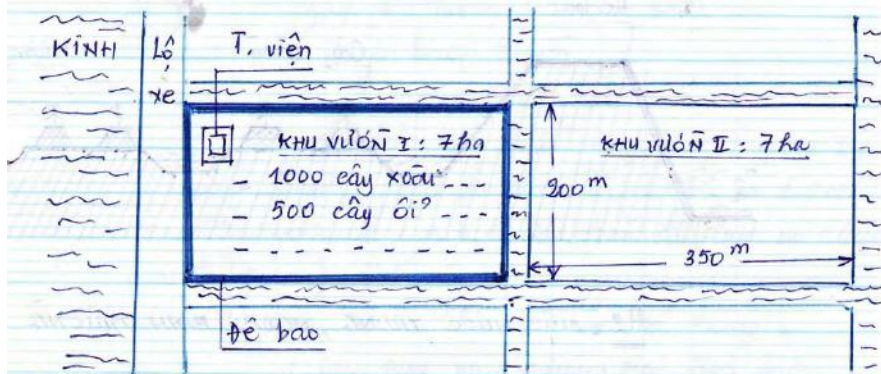 KINH
Lộ xe
T. viện
KHU VƯỜN I : 7 ha
- 1000 cây xoài ---
- 500 cây ổi ---
KHU VƯỜN II : 7 ha
200 m
350 m
Đê bao